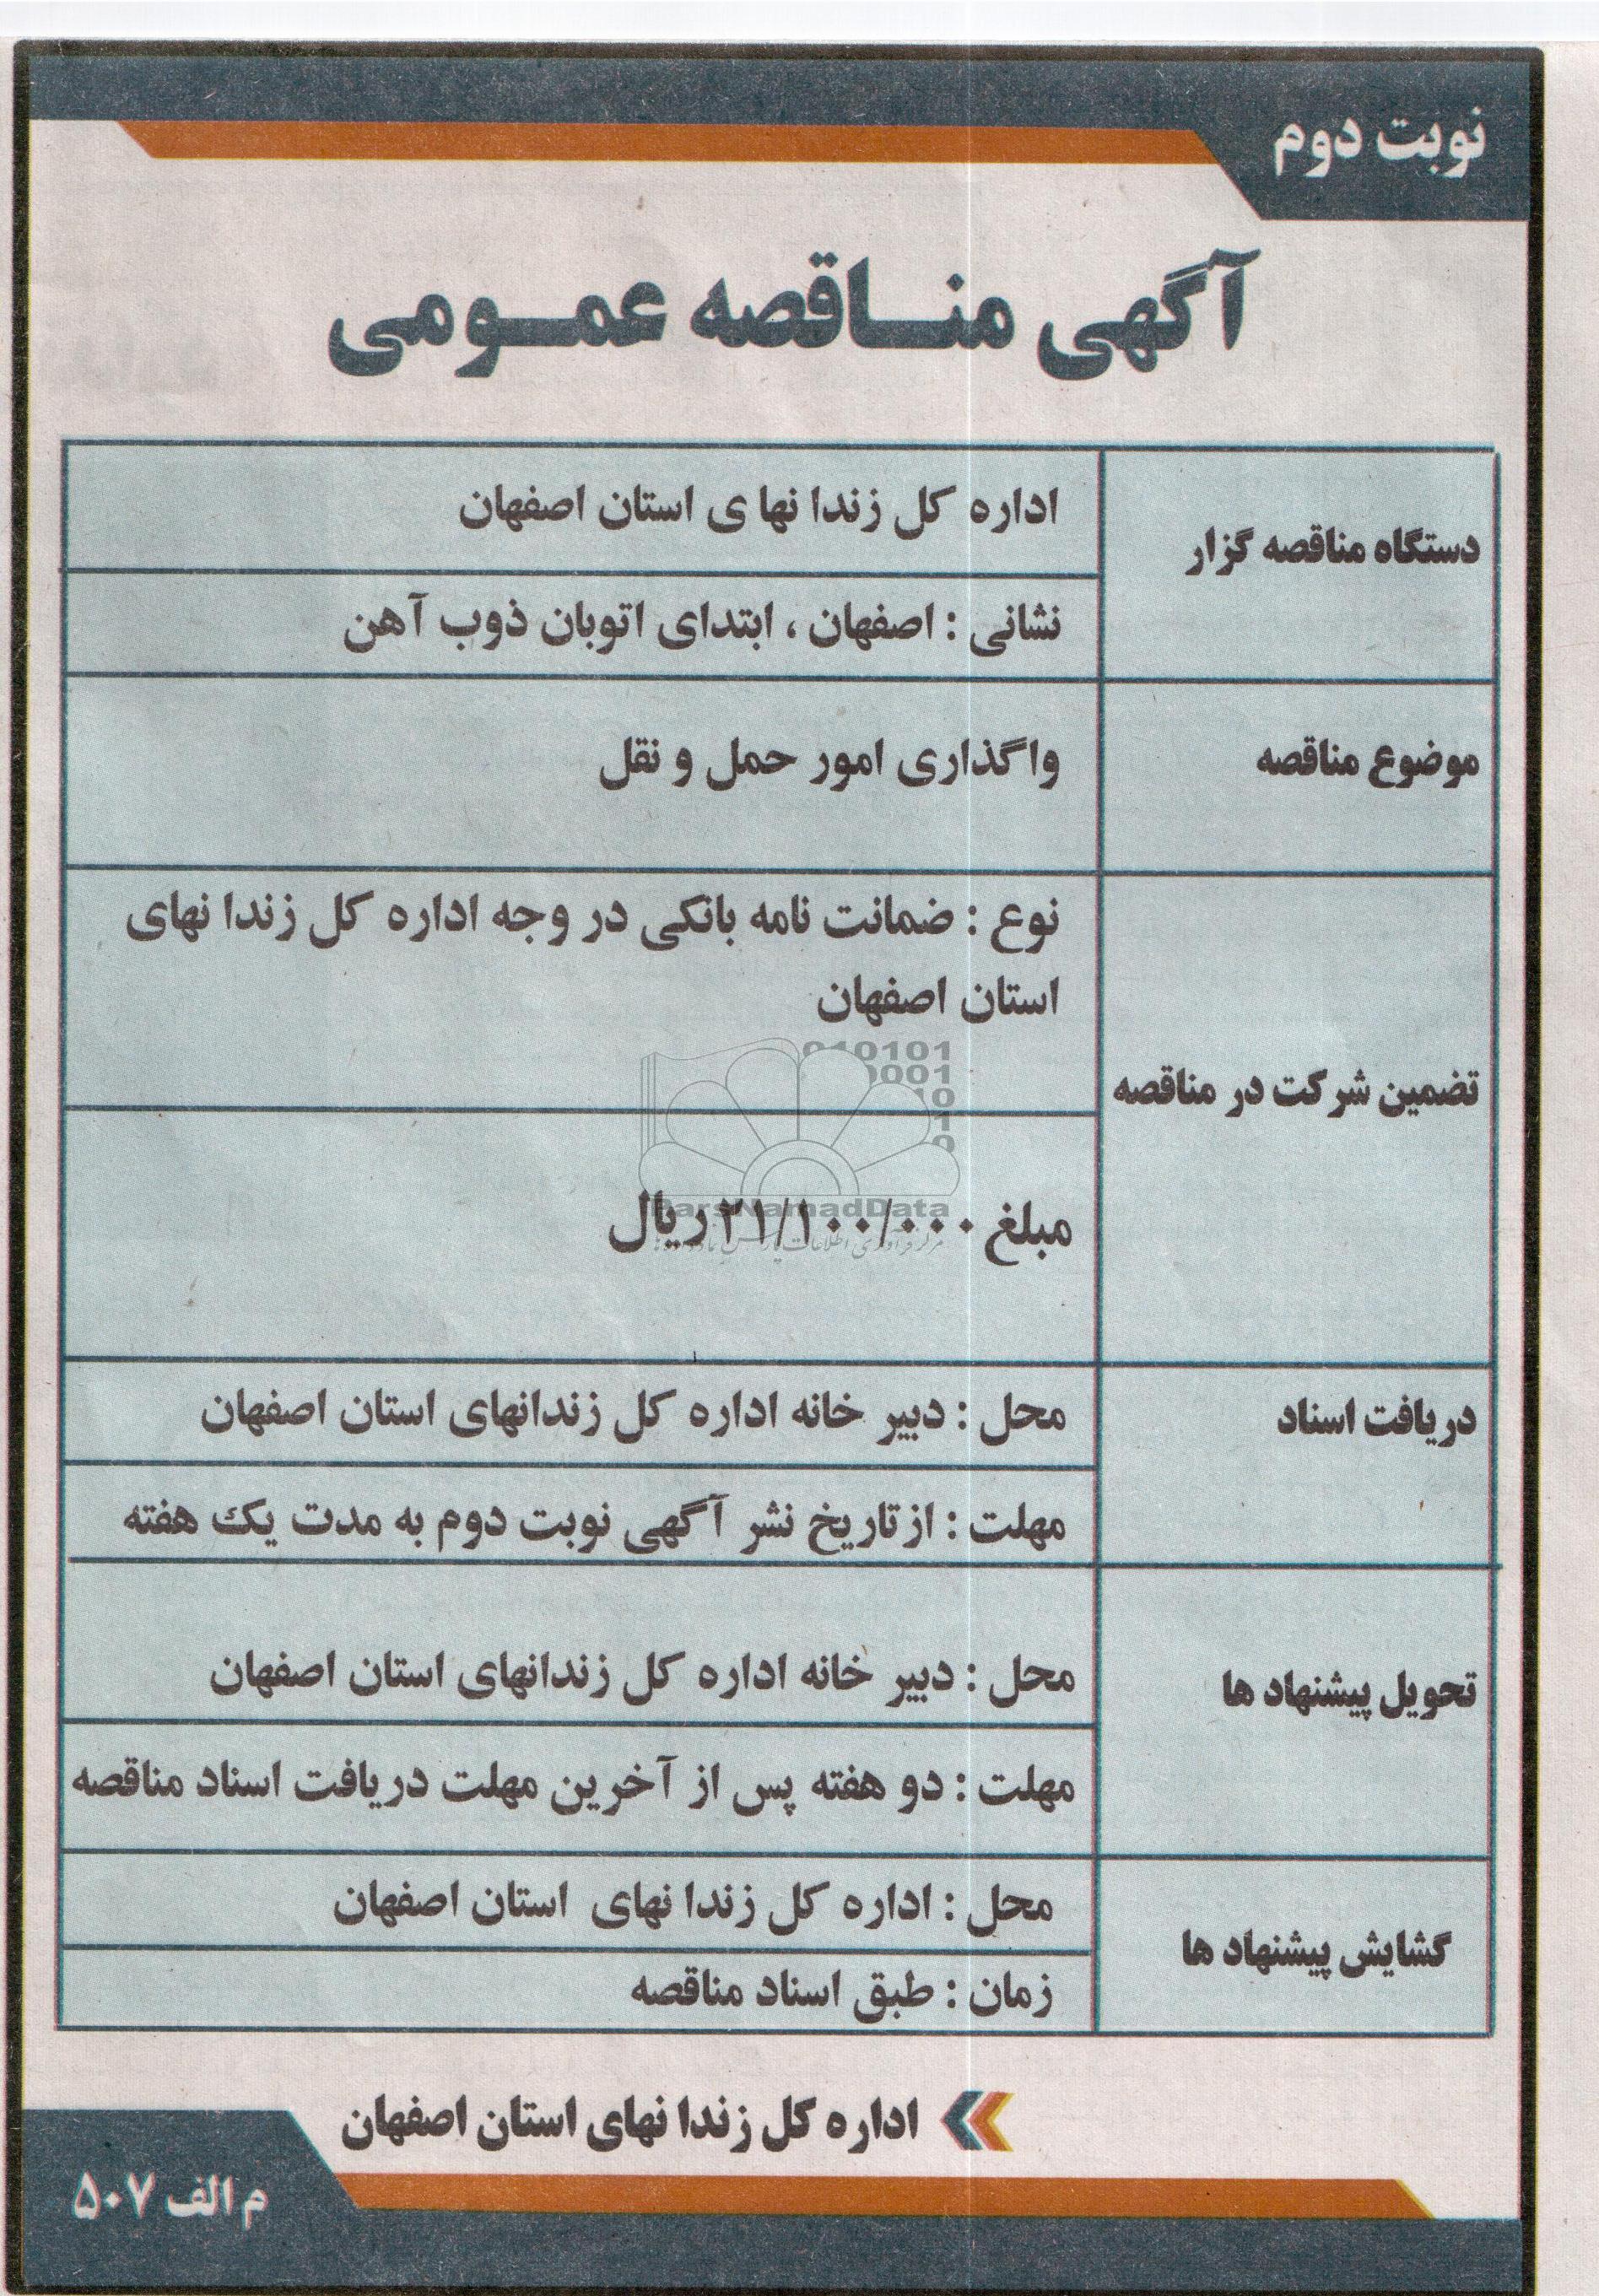 نوبت دوم
آگهی مناقصه عمومی
دستگاه مناقصه گزار
اداره کل زندا نها ی استان اصفهان
نشانی : اصفهان ، ابتدای اتوبان ذوب آهن
موضوع مناقصه
واگذاری امور حمل و نقل
تضمین شرکت در مناقصه
نوع : ضمانت نامه بانکی در وجه اداره کل زندا نهای
استان اصفهان
مبلغ ۲۱/۱۰۰/۰۰۰ ریال
دریافت اسناد
محل : دبیر خانه اداره کل زندانهای استان اصفهان
مهلت : از تاریخ نشر آگهی نوبت دوم به مدت یک هفته
تحویل پیشنهاد ها
محل : دبیر خانه اداره کل زندانهای استان اصفهان
مهلت : دو هفته پس از آخرین مهلت دریافت اسناد مناقصه
گشایش پیشنهاد ها
محل : اداره کل زندا نهای استان اصفهان
زمان : طبق اسناد مناقصه
اداره کل زندا نهای استان اصفهان
م الف ۵۰۷
ParsNamadData